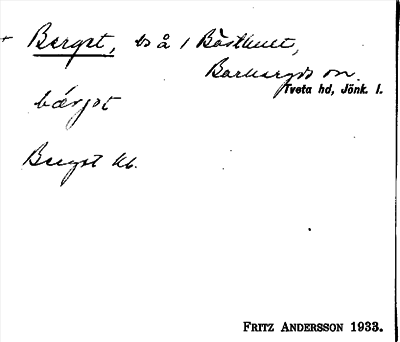 + Bergst, bs å 1 Bästhult,
Barkeryds sn.
Tveta hd, Jönk. l.
bærjst
Bergst kb.
FRITZ ANDERSSON 1933.